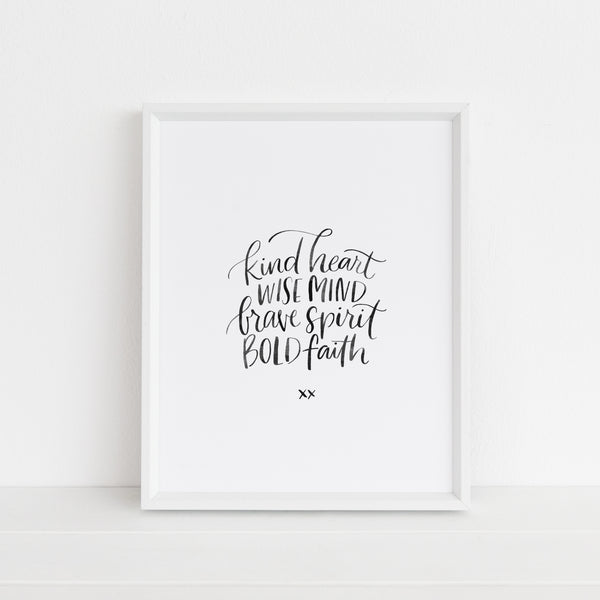 kind heart
WISE MIND
brave spirit
BOLD faith
xx